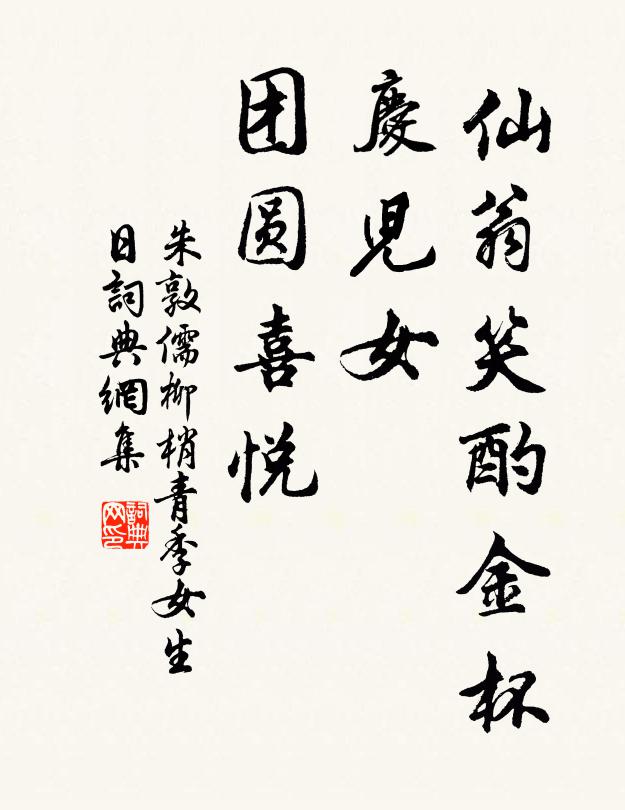 仙翁笑酌金杯
慶児女
团圆喜悦
朱敦儒柳梢青季女生
日詞典網集
詞典
网印